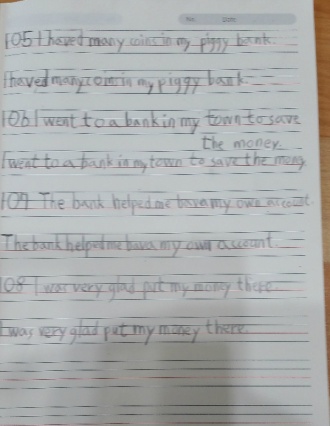 No. Date
105 I haved many coins in my piggy bank.
I haved many coin in my piggy bank
106 I went to a bank in my town to save
the money.
I went to a bank in my town to save the mony
107 The bank helped me hava my own account.
The bank helped me hava my own account.
108 I was very glad put my money there.
I was very glad put my money there.